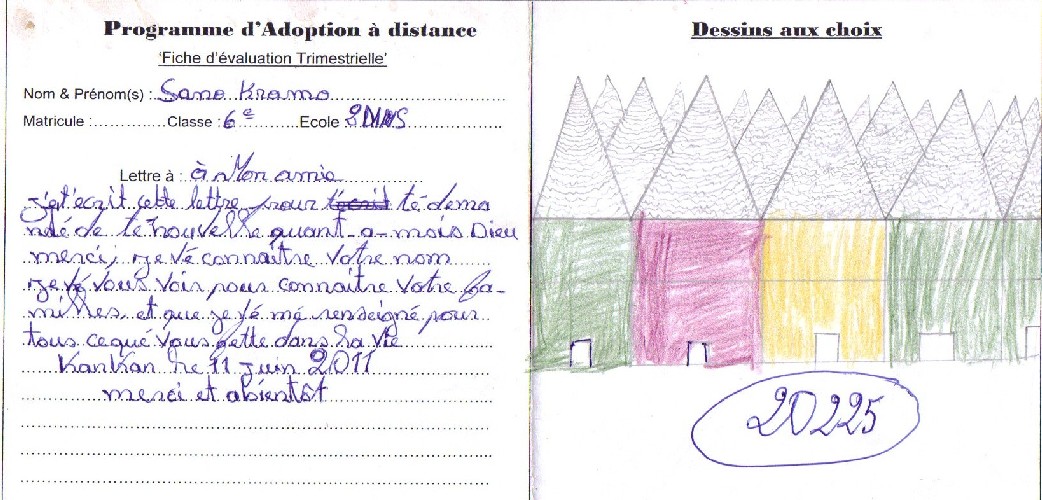 Programme d'Adoption à distance
'Fiche d'évaluation Trimestrielle'
Nom & Prénom(s) : Sano Kramo
Matricule : Classe : 6e Ecole
Lettre à : à Mon amie
je t'écrit cette lettre pour t'écrit té dema
ndé de té nouvelle quant-a-mois Dieu
merci, je vé connaître votre nom
je vé vous voir pour connaitre votre fa-
milles, et que je vé mé renseigné pour
tous ce qué vous fette dans la vie
Kankan le 11 juin 2011
merci et abientôt
Dessins aux choix
20225